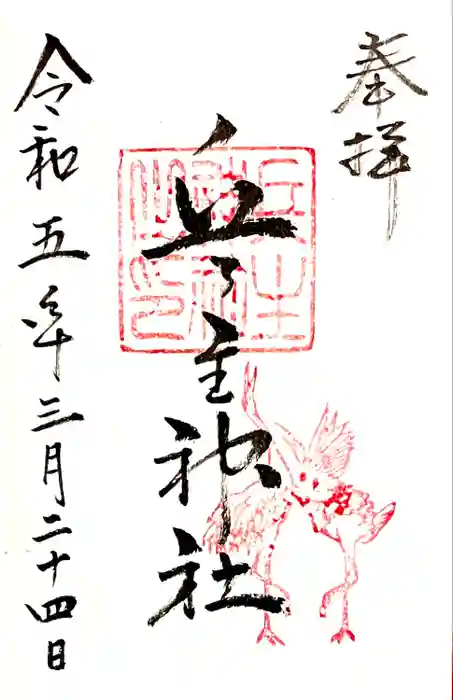 奉拝
兵主神社
令和五年三月二十四日